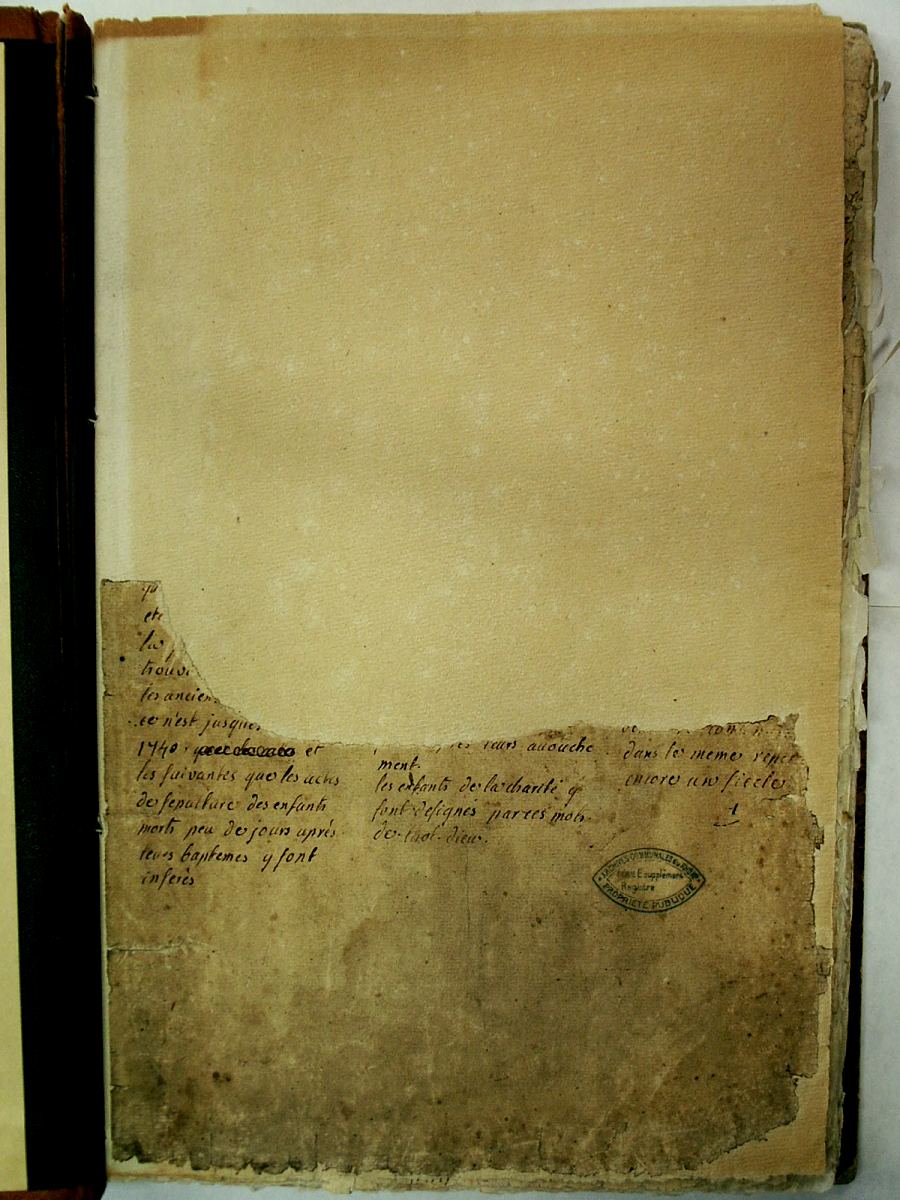 et
la
trouv
les ancien
ce n'est jusque
1740 et
les suivantes que les actes
de sepulture des enfants
morts peu de jours après
leurs baptemes y sont
inserés
leurs accouche
ment.
les enfants de la charité y
sont designés par ces mots
de
dans le meme
encore un siecle
1
ARCHIVES COMMUNALES
E supplément
Registre
PROPRIÉTÉ PUBLIQUE